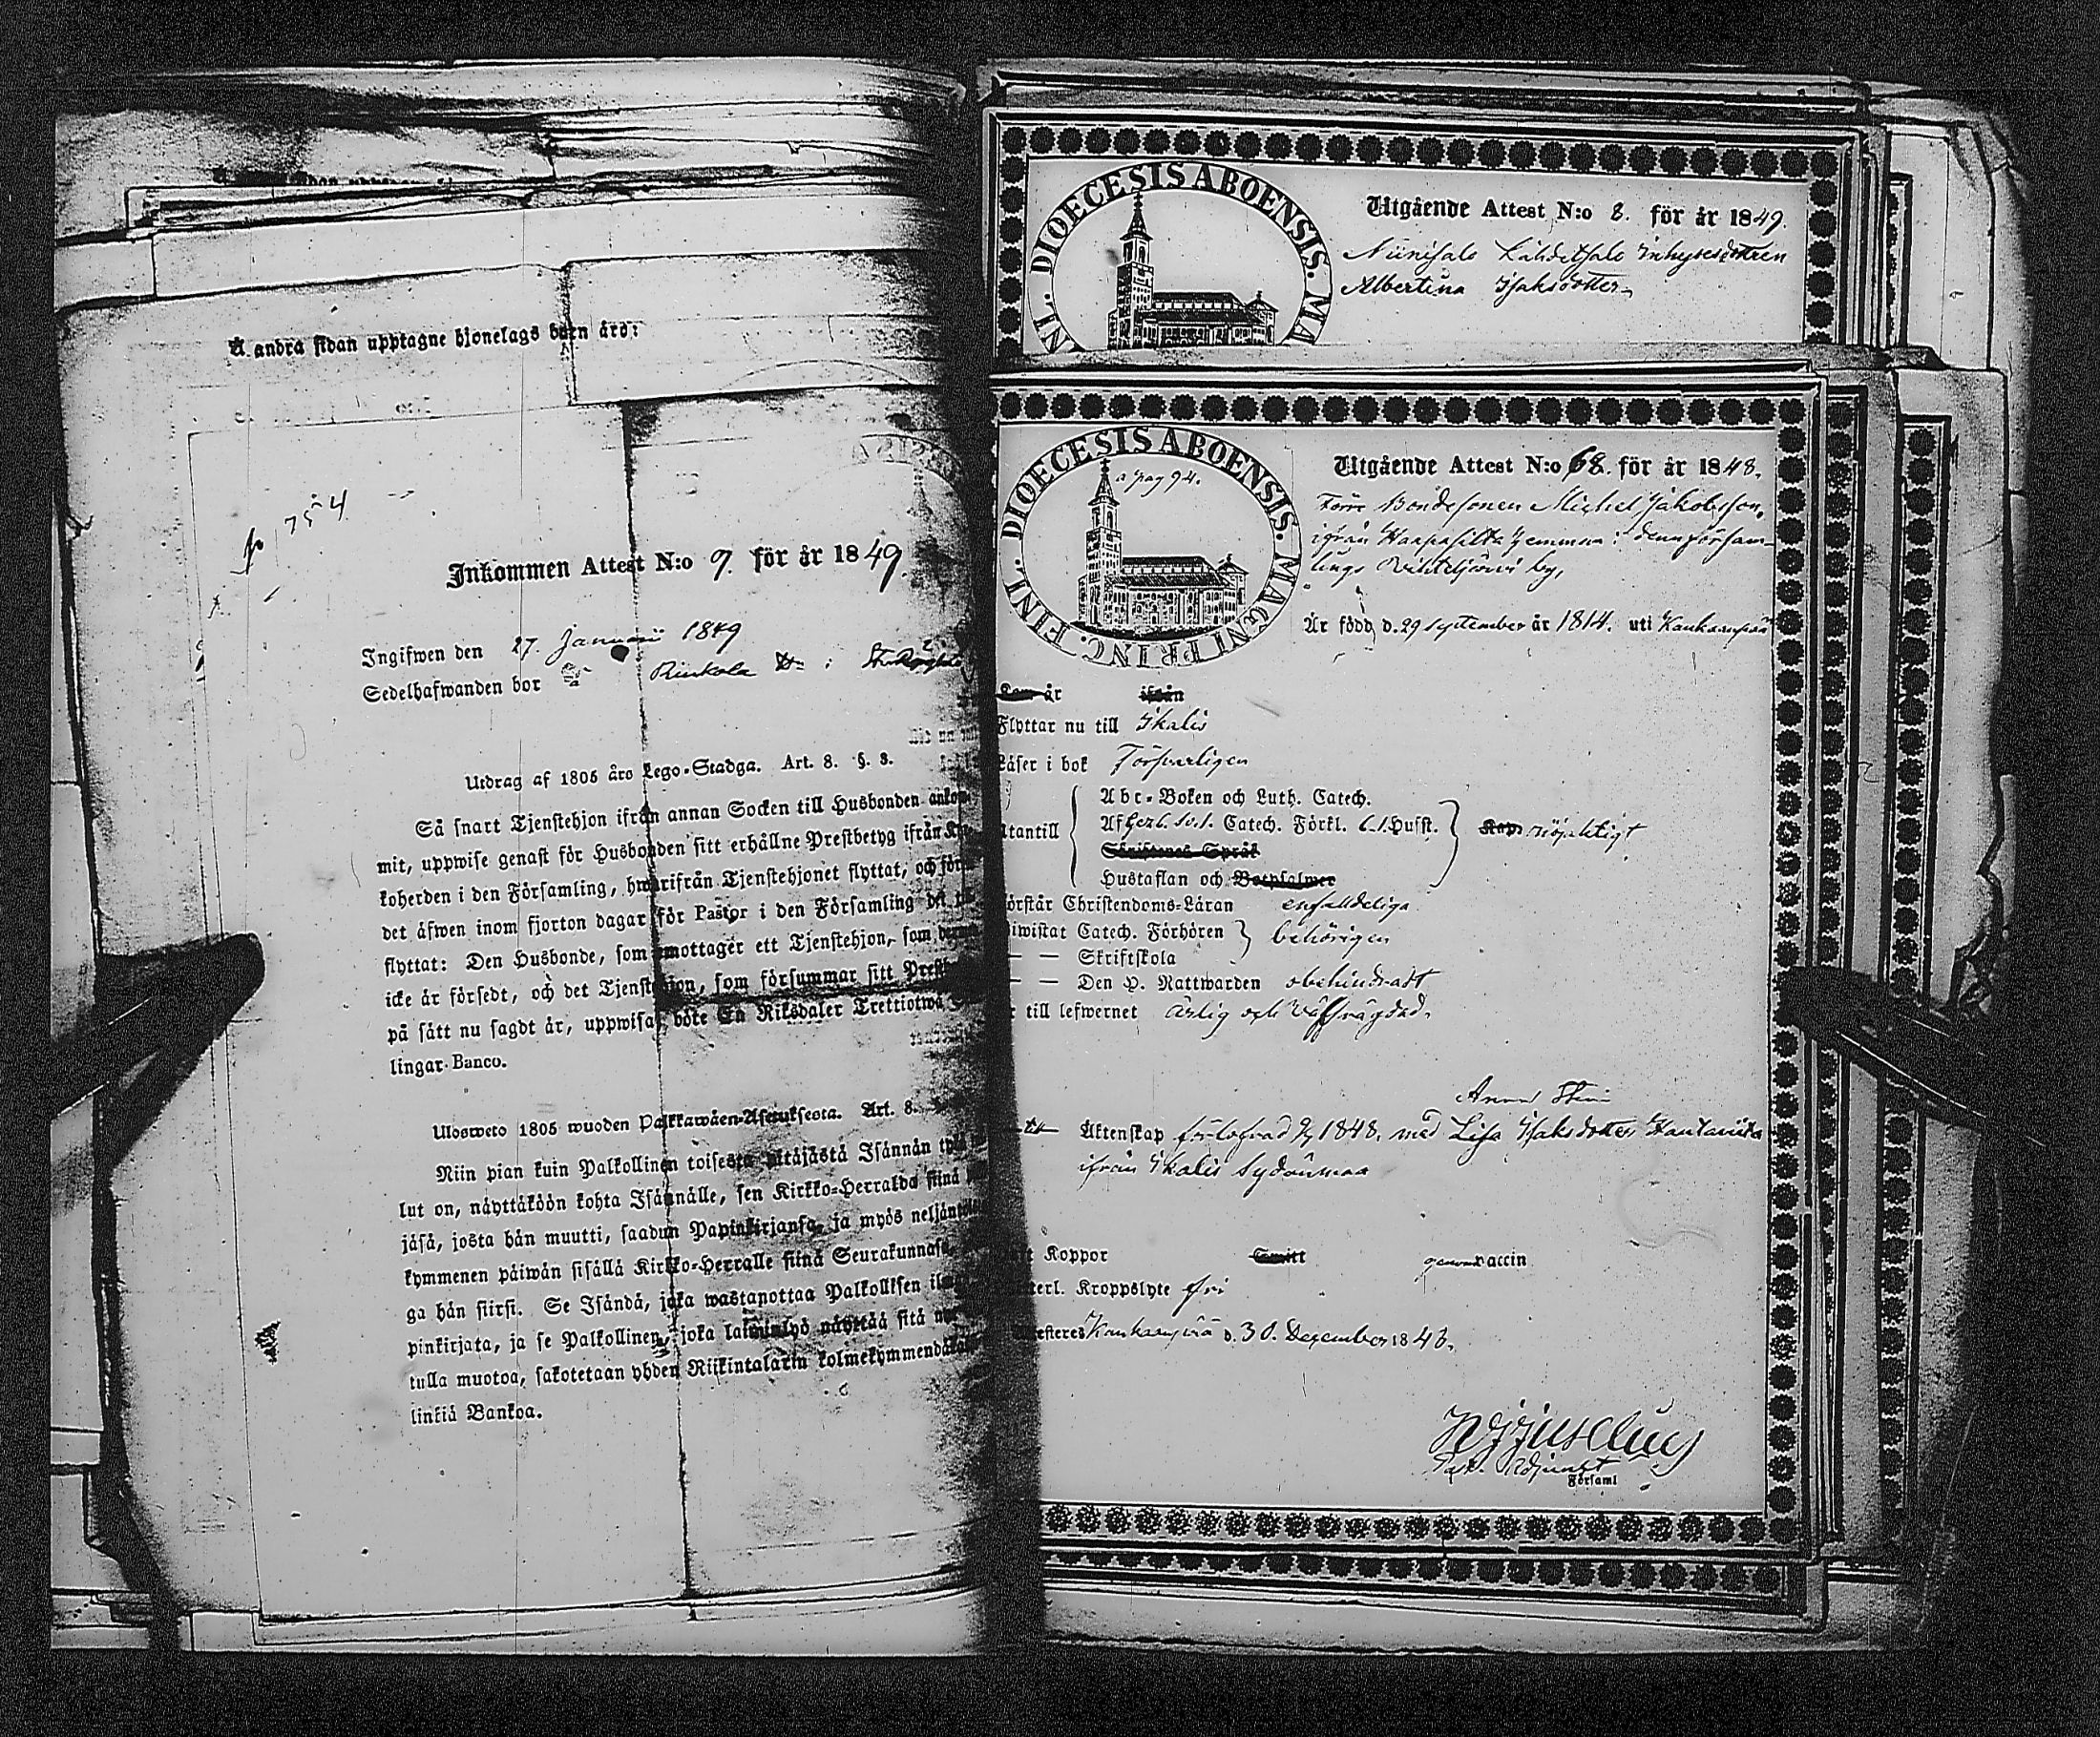 A andra sidan upptagne hjonelags barn äro:
p 754
Inkommen Attest N:o 9. för år 1849
Ingifwen den 27. Januarii 1849
Sedelhafwanden bor å Riukola
Utdrag af 1805 års Lego-Stadga. Art. 8. §. 3.
Så snart Tjenstehjon ifrån annan Socken till Husbonden ankom-
mit, uppwise genast för Husbonden sitt erhållne Prestbetyg ifrån Kyr-
koherden i den Församling, hwarifrån Tjenstehjonet flyttat, och
det äfwen inom fjorton dagar för Pastor i den Församling dit
flyttat: Den Husbonde, som emottager ett Tjenstehjon, som
icke är försedt, och det Tjenstehjon, som försummar sitt
på sätt nu sagdt är, uppwisa, böte En Riksdaler Trettiotwå
lingar Banco.
Ulosweto 1805 wuoden Palkkawäen-Asetuksesta. Art. 8.
Niin pian kuin Palkollinen toisesta pitäjästä Isännän
lut on, näyttäköön kohta Isännälle, sen Kirkko-Herralda siinä
jäsä, josta hän muutti, saadun Papinkirjansa, ja myös
kymmenen päiwän sisällä Kirkko-Herralle siinä Seurakunnasa,
ga hän siirsi. Se Isändä, joka wastanottaa Palkollisen
pinkirjata, ja se Palkollinen, joka laiminlyö näyttää sitä
tulla muotoa, sakotetaan yhden Riikintalarin
linkiä Bankoa.
DIOECESIS ABOENSIS. MA
Utgående Attest N:o 8. för år 1849.
Lähdesalo Inhysesdottren
Albertina Isaksdotter
DIOECESIS ABOENSIS. MAGNI PRINC. FINL.
a pag 94.
Utgående Attest N:o 68. för år 1848.
Förre Bondesonen Michel Jakobsson,
ifrån Haapasilta hemman i denn församlings by,
Är född d. 29 September år 1814. uti Kankaanpää
år ifrån
Flyttar nu till Ikalis
Läser i bok Försvarligen
Utantill
Abc-Boken och Luth. Catech.
Af Gezel. Sv. l. Catech. Förkl. Husst.
Skriftenes Språk
Hustaflan och Botpsalmer
nöjaktigt
Förstår Christendoms-Läran enfaldeliga
Biwistat Catech. Förhören behörigen
— — Skriftskola
— — Den H. Nattwarden obehindradt
Är till lefwernet ärlig och välfrägdad.
Anna Stina
Äktenskap förlofwad 1848. med Lisa Isaksdotter
ifrån Ikalis Sydänmaa
Koppor genom vaccin
Kroppslyte fri
Kankaanpää d. 30. December 1848.
Past. Adjunkt
Församl